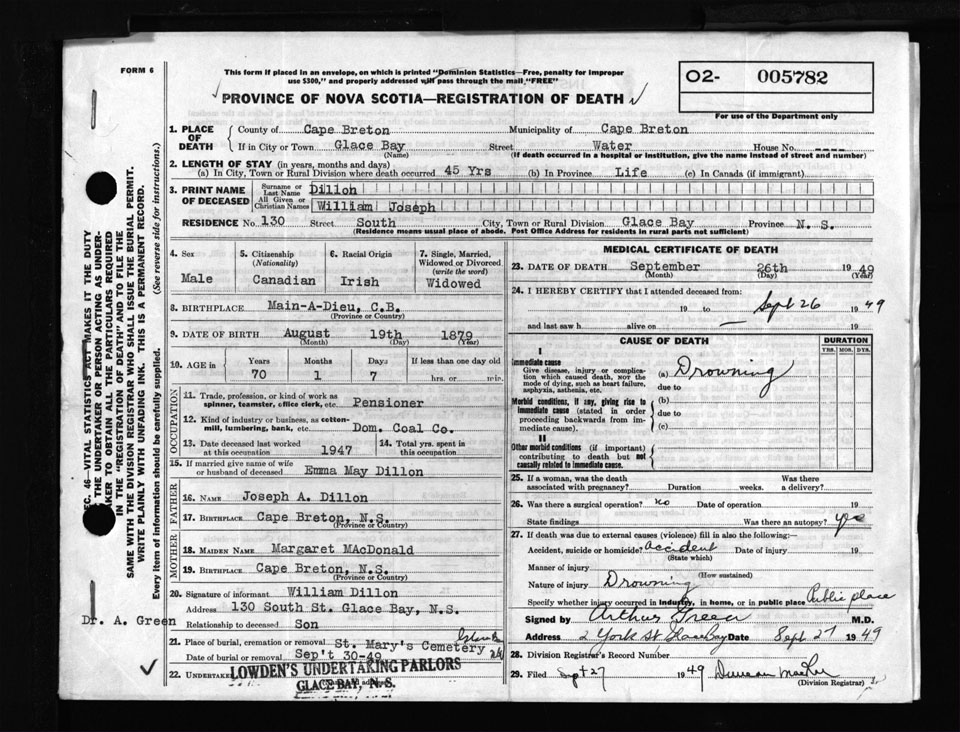 FORM 6
This form if placed in an envelope, on which is printed "Dominion Statistics—Free, penalty for improper
use $300," and properly addressed will pass through the mail "FREE"
02- 005782
PROVINCE OF NOVA SCOTIA—REGISTRATION OF DEATH
For use of the Department only
1. PLACE OF DEATH
County of Cape Breton Municipality of Cape Breton
If in City or Town Glace Bay Street Water House No. ----
(Name) (If death occurred in a hospital or institution, give the name instead of street and number)
2. LENGTH OF STAY (in years, months and days)
(a) In City, Town or Rural Division where death occurred 45 Yrs (b) In Province Life (c) In Canada (if immigrant)
3. PRINT NAME OF DECEASED
Surname or Last Name Dillon
All Given or Christian Names William Joseph
RESIDENCE No. 130 Street South City, Town or Rural Division Glace Bay Province N. S.
(Residence means usual place of abode. Post Office Address for residents in rural parts not sufficient)
4. Sex
Male
5. Citizenship (Nationality)
Canadian
6. Racial Origin
Irish
7. Single, Married, Widowed or Divorced (write the word)
Widowed
8. BIRTHPLACE Main-A-Dieu, C.B.
(Province or Country)
9. DATE OF BIRTH August 19th 1879
(Month) (Day) (Year)
10. AGE in Years Months Days If less than one day old
70 1 7 hrs. or min.
OCCUPATION
11. Trade, profession, or kind of work as spinner, teamster, office clerk, etc. Pensioner
12. Kind of industry or business, as cotton-mill, lumbering, bank, etc. Dom. Coal Co.
13. Date deceased last worked at this occupation 1947
14. Total yrs. spent in this occupation
15. If married give name of wife or husband of deceased Emma May Dillon
FATHER
16. NAME Joseph A. Dillon
17. BIRTHPLACE Cape Breton, N.S.
(Province or Country)
MOTHER
18. MAIDEN NAME Margaret MAcDonald
19. BIRTHPLACE Cape Breton, N.S.
(Province or Country)
20. Signature of informant William Dillon
Address 130 South St. Glace Bay, N.S.
Relationship to deceased Son
Dr. A. Green
21. Place of burial, cremation or removal St. Mary's Cemetery
Date of burial or removal Sep't 30-49
22. UNDERTAKER LOWDEN'S UNDERTAKING PARLORS
GLACE BAY, N. S.
MEDICAL CERTIFICATE OF DEATH
23. DATE OF DEATH September 26th 1949
(Month) (Day) (Year)
24. I HEREBY CERTIFY that I attended deceased from:
19 to Sept 26 1949
and last saw h alive on — 19
CAUSE OF DEATH
DURATION
YRS. MOS. DYS.
I
Immediate cause
Give disease, injury or complication which caused death, NOT the mode of dying, such as heart failure, asphyxia, asthenia, etc.
(a) Drowning
due to
Morbid conditions, if any, giving rise to immediate cause (stated in order proceeding backwards from immediate cause).
(b)
due to
(c)
II
Other morbid conditions (if important) contributing to death but not causally related to immediate cause.
25. If a woman, was the death associated with pregnancy? Duration weeks. Was there a delivery?
26. Was there a surgical operation? no Date of operation 19
State findings Was there an autopsy? yes
27. If death was due to external causes (violence) fill in also the following:—
Accident, suicide or homicide? accident Date of injury 19
(State which)
Manner of injury
(How sustained)
Nature of injury Drowning
Specify whether injury occurred in industry, in home, or in public place Public place
Signed by Arthur Green M.D.
Address 2 York St Glace Bay Date Sept. 27 1949
28. Division Registrar's Record Number
29. Filed Sept 27 1949 Duncan
(Division Registrar)
SEC. 46—VITAL STATISTICS ACT MAKES IT THE DUTY
THE UNDERTAKER OR PERSON ACTING AS UNDER-
TAKER TO OBTAIN ALL THE PARTICULARS REQUIRED
IN THE "REGISTRATION OF DEATH" AND TO FILE THE
SAME WITH THE DIVISION REGISTRAR WHO SHALL ISSUE THE BURIAL PERMIT.
WRITE PLAINLY WITH UNFADING INK. THIS IS A PERMANENT RECORD.
Every item of information should be carefully supplied. (See reverse side for instructions.)